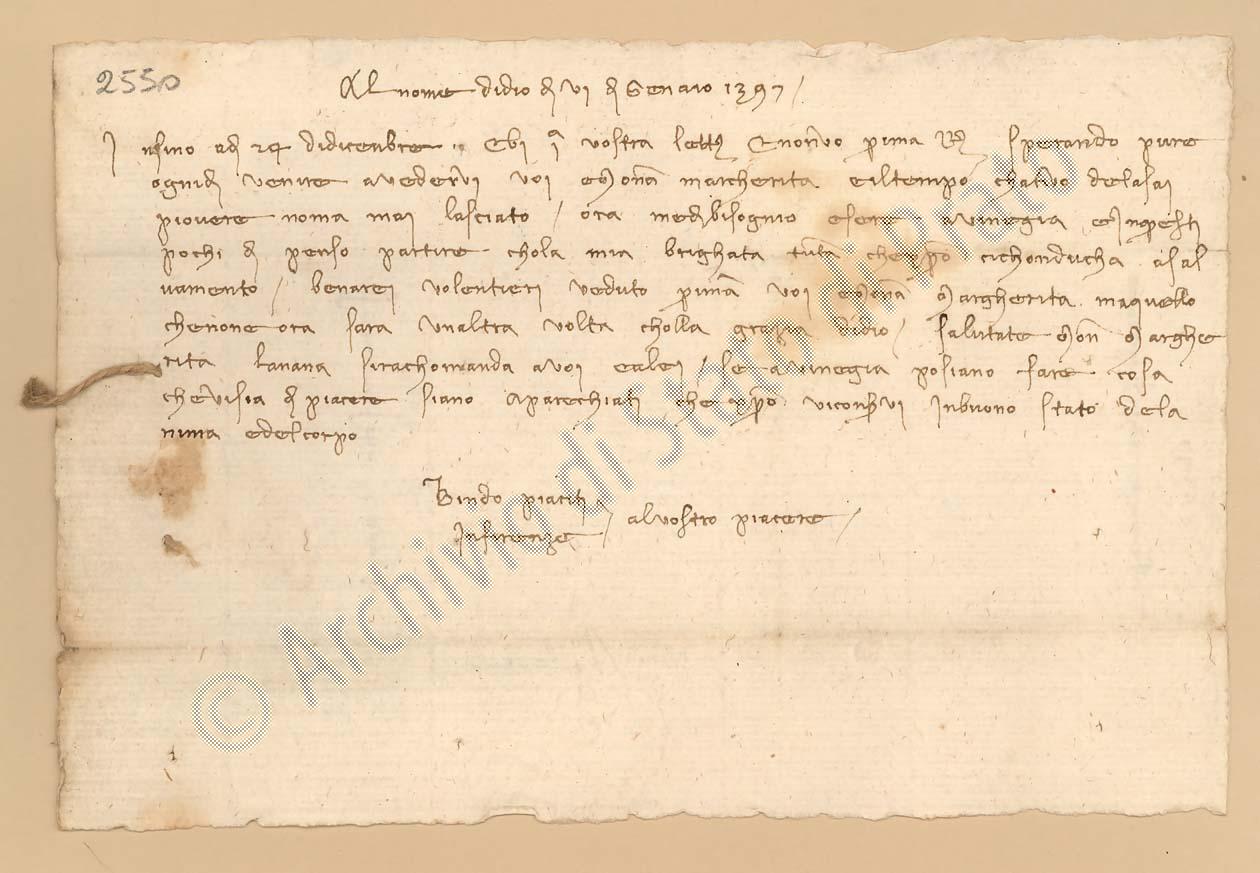 2550
Al nome didio dì vi dì Genaio 1397 /
Insino adì 24 didicenbre Ebi 1ª vostra lettª Enonvo prima Rº sperando pure
ognidì venire avedervi voi e Monª Margherita eiltempo chativo delasai
piovere noma mai lasciato / ora medibisognio esere avinegia e Inqesti
pochi dì penso partire chola mia brighata tutª che cichonducha asal
vamento / benarei volentieri veduto primª voi e Monª Margherita maquello
chenone ora sara unaltra volta cholla grazia didio / salutate Monª Marghe
rita lanana sirachomanda avoi ealei / se avinegia posiano fare cosa
chevisia dì piacere siano aparechiati che viconsvi Inbuono stato dela
nima edelcorpo
Bindo piaciti
Infirenze / alvostro piacere /
© Archivio di Stato di Prato